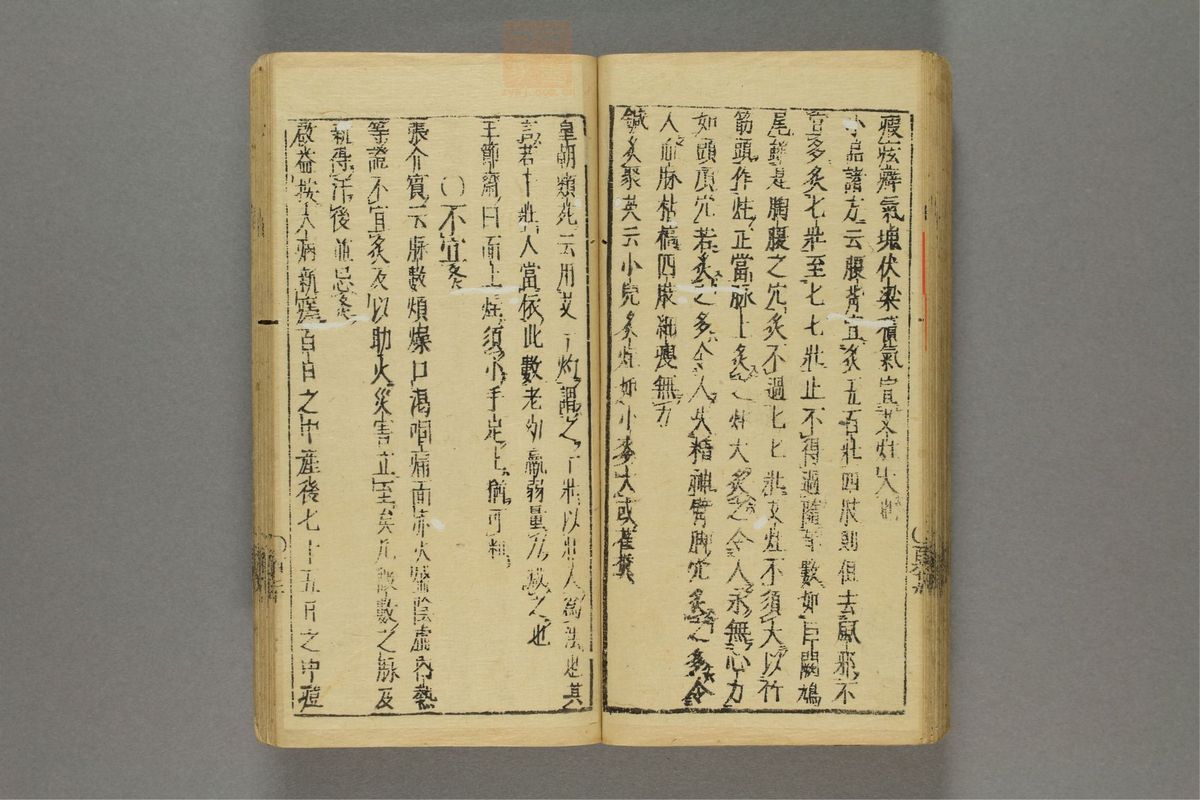 瘦痃癖氣塊伏梁積氣宜艾炷大
小品諸方云腹背宜灸五百壯四肢則但去風邪不
宜多灸七壯至七七壯止不得過隨年數如巨闕鳩
尾雖是胸腹之穴灸不過七七壯艾炷不須大以竹
筋頭作炷正當脉上灸之炷大灸之令人永無心力
如頭頂穴若灸之多令人失精神臂脚穴灸之多令
人血脉枯槁四肢細瘦無力
鍼灸聚英云小兒灸炷如小麥大或雀糞
皇朝類苑云用艾一灼謂之一壯以壯人爲法也其
言若干壯人當依此數老幼羸弱量力減之也
王節齋曰面上炷須小手足上猶可粗
〇不宜灸
張介賓云脉數煩燥口渴咽痛面赤火盛陰虛內熱
等證不宜灸反以助火災害立至矣凡微數之脉及
新得汗後並忌灸
啟益按大病新瘥百日之中產後七十五日之中